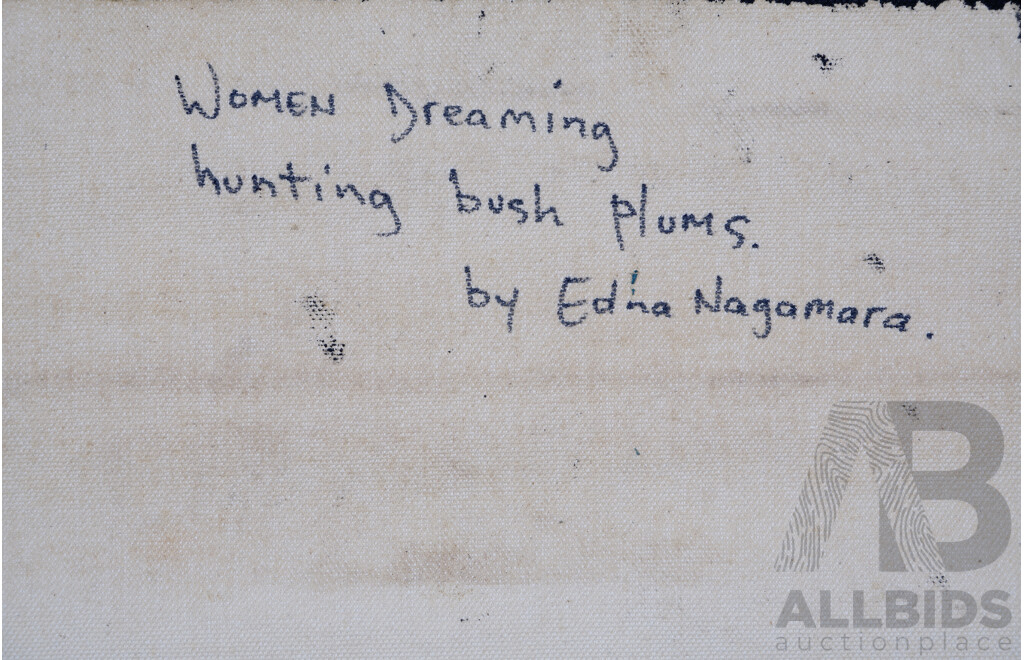 WOMEN Dreaming
hunting bush plums.
by Edna Nagamara.
AB
ALLBIDS
auctionplace